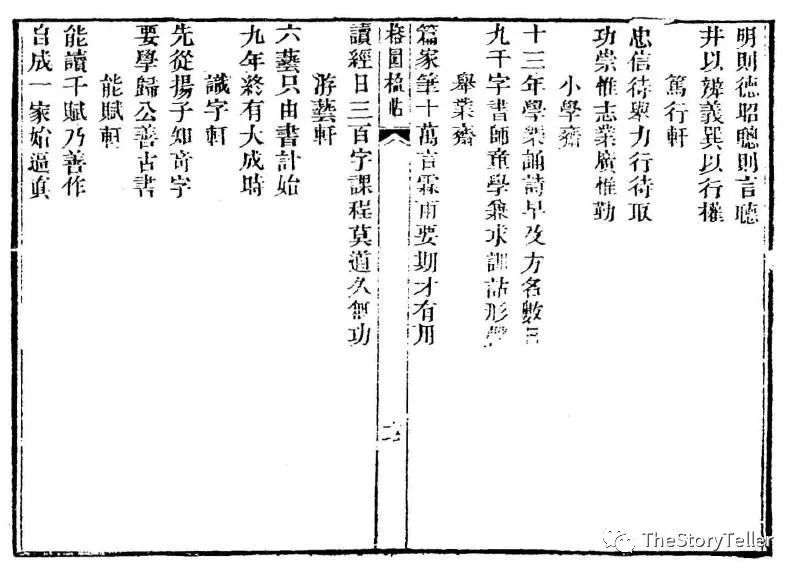 明則德昭聰則言聽
井以辨義巽以行權
篤行軒
忠信待舉力行待取
功崇惟志業廣惟勤
小學齋
十三年學樂誦詩早及方名數日
九千字書師童學兼求訓詁形聲
舉業齋
篇家筆十萬言霖雨要期才有用
榕園楹帖
讀經日三百字課程莫道久無功
游藝軒
六藝只由書計始
九年終有大成時
識字軒
先從揚子知奇字
要學歸公善古書
能賦軒
能讀千賦乃善作
自成一家始逼真
TheStoryTeller